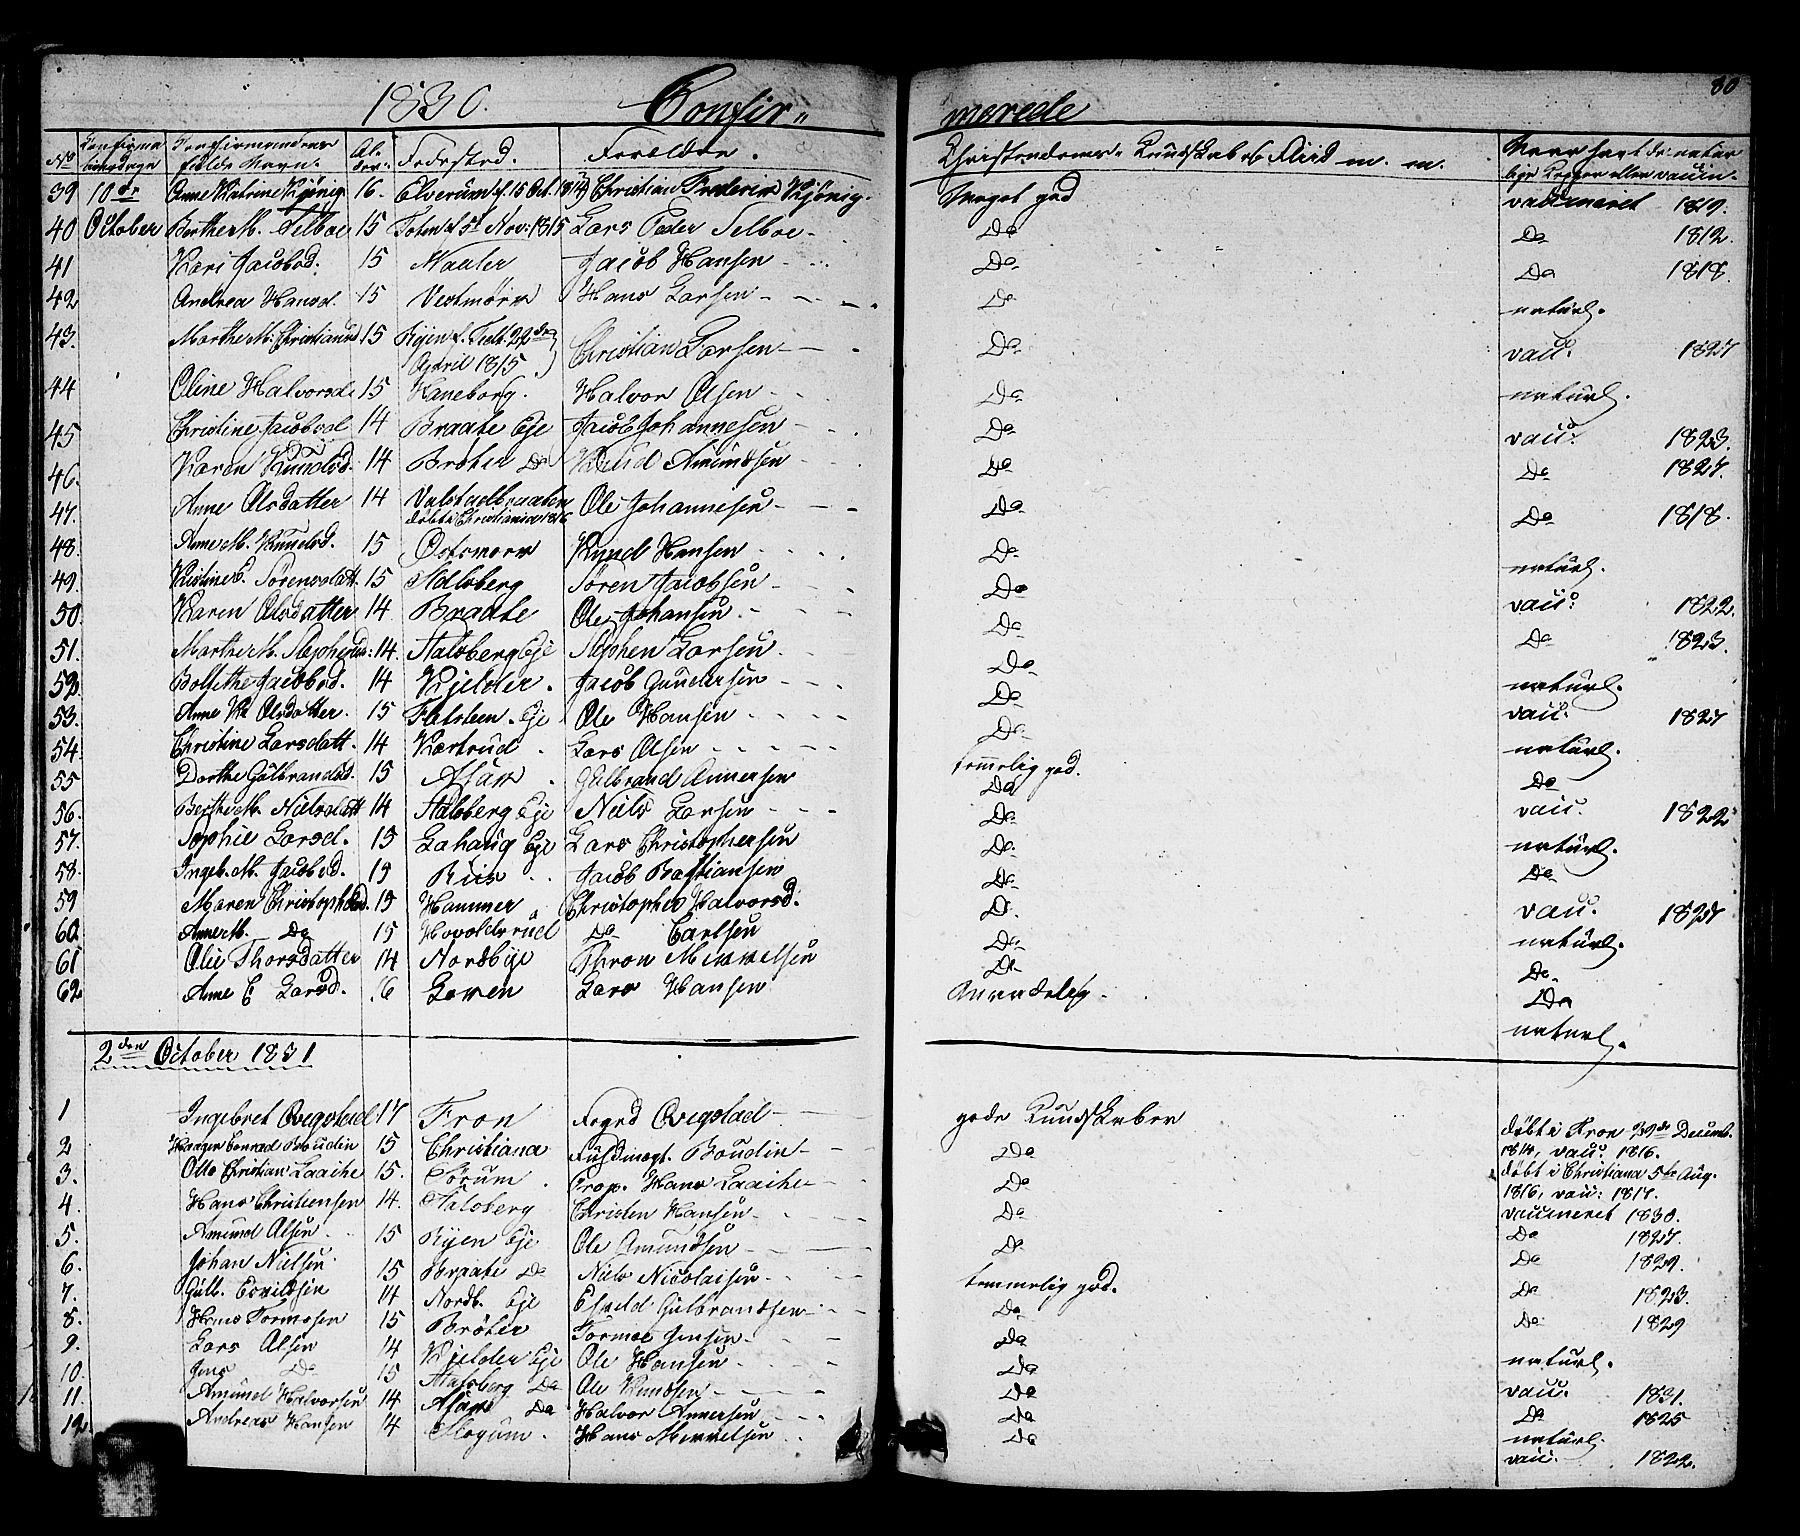 1830. Confir- merede 80
No Confirmationsdage Confirmandernes fulde Navn. Alder. Fødested. Forældre. Christendoms-Kundskab og Fliid m. m. Naar havt de naturlige Kopper eller vaccin.
39 10de Anne Katrine Kjønig 16. Elverum f. 15 Oct. 1814 Christian Frederik Kjønig. Meget god vaccineret 1819.
40 October Berthe M. Selboe 15 Toten f. 5t Nov: 1815 Lars Peder Selboe Do Do 1812.
41 Kari Jacobsd. 15 Maaler Jacob Hansen Do Do 1818.
42 Andrea Hansd. 15 Vestmoen Hans Larsen Do naturl.
43. Marthe M. Christiansd. 15 Ryen f. Feb. 22de April 1815 Christian Larsen Do vacc. 1827
44 Oline Halvorsd. 15 Haneborg. Halvor Olsen Do naturl.
45 Christine Jacobsd 14 Braate Eje Jacob Johannesen Do vacc: 1823.
46. Karen Knudsd. 14 Bröter Do Knud Amundsen Do Do 1827.
47. Anne Olsdatter 14 Valstadbraaten döbt i Christiania 1816 Ole Johannesen Do Do 1818.
48. Anne M. Knudsd. 15 Ostmoen Knud Hansen Do naturl.
49. Kistine E. Sörensdatt. 15 Aalsberg Sören Jacobsen Do vacc: 1822.
50. Karen Olsdatter 14 Braate Ole Johansen Do Do 1823.
51. Marthe M. Stephensd: 14. Aalsberg Eje Stephen Larsen Do naturl.
52. Bolethe Jacobsd. 14 Kjelder. Jacob Gundersen Do vacc. 1827
53. Anne K. Olsdatter. 15 Fletsteen. Eje Ole Hansen Do naturl.
54. Christine Larsdatt. 14 Kartrud Lars Olsen temmelig god. Do
55 Dorthe Gulbrandsd. 15 Gulbrand Annersen Do vacc. 1822
56. Berthe M. Nielsdatt 14 Aalsberg Eje Niels Larsen Do naturl.
57. Sophie Larsd. 15 Lahaug Eje Lars Christophersen Do Do
58. Ingeb. M. Jacobsd. 15 Riis Jacob Bastiansen Do vacc. 1827
59 Maren Christophersd. 15 Hammer Christopher Halvorsd. D. naturl.
60. Anne M. Do 15 Hovoldsrud Do Carlsen Do Do
61 Olie Thorsdatter 14 Nordbye Thron Mikkelsen Do Do
62 Anne E Larsd. 16 Loven Lars Hansen naturl.
2den October 1831
1 Ingebret Qvegstad 17 Fron Foged Qvegstad gode Kundskaber döbt i Fron Decemb. 1814, vacc. 1816.
2 Haagen Conrad Boudin 15 Christiana Fuldmægt. Boudin Do döbt i Christiana 5te Aug. 1816, vacc: 1817.
3. Otto Christian Laache 15. Sörum. Prop. Hans Laache Do vaccineret 1830.
4. Hans Christensen 14. Aalsberg Christen Hansen Do Do 1827.
5. Amund Olsen 15 Ryen Eje Ole Amundsen Do Do 1829.
6. Johan Nielsen 15 Braate Do Niels Nicolaisen temmelig god. Do 1823.
7. Gulb. Esvildsen 14 Nordb. Eje Esvild Gulbrandsen Do Do 1829
8. Hans Tormosen 15 Bröter Tormoe Jensen Do naturl.
9. Lars Olsen 14 Kjelder Eje Ole Hansen Do vacc: 1831.
10. Jens Do 15 Aalsberg Do Ole Knudsen Do Do 1825
11. Amund Halvorsen 14 Do Halvor Annersen Do naturl.
12. Andreas Hansen 14 Slogum. Hans Mikkelsen Do vacc. 1822.